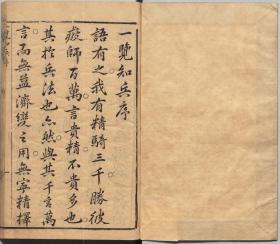 一覽知兵序
語有之我有精騎三千勝彼
疲師百萬言貴精不貴多也
其於兵法也亦然與其千言萬
言而無益濟變之用無寧精擇